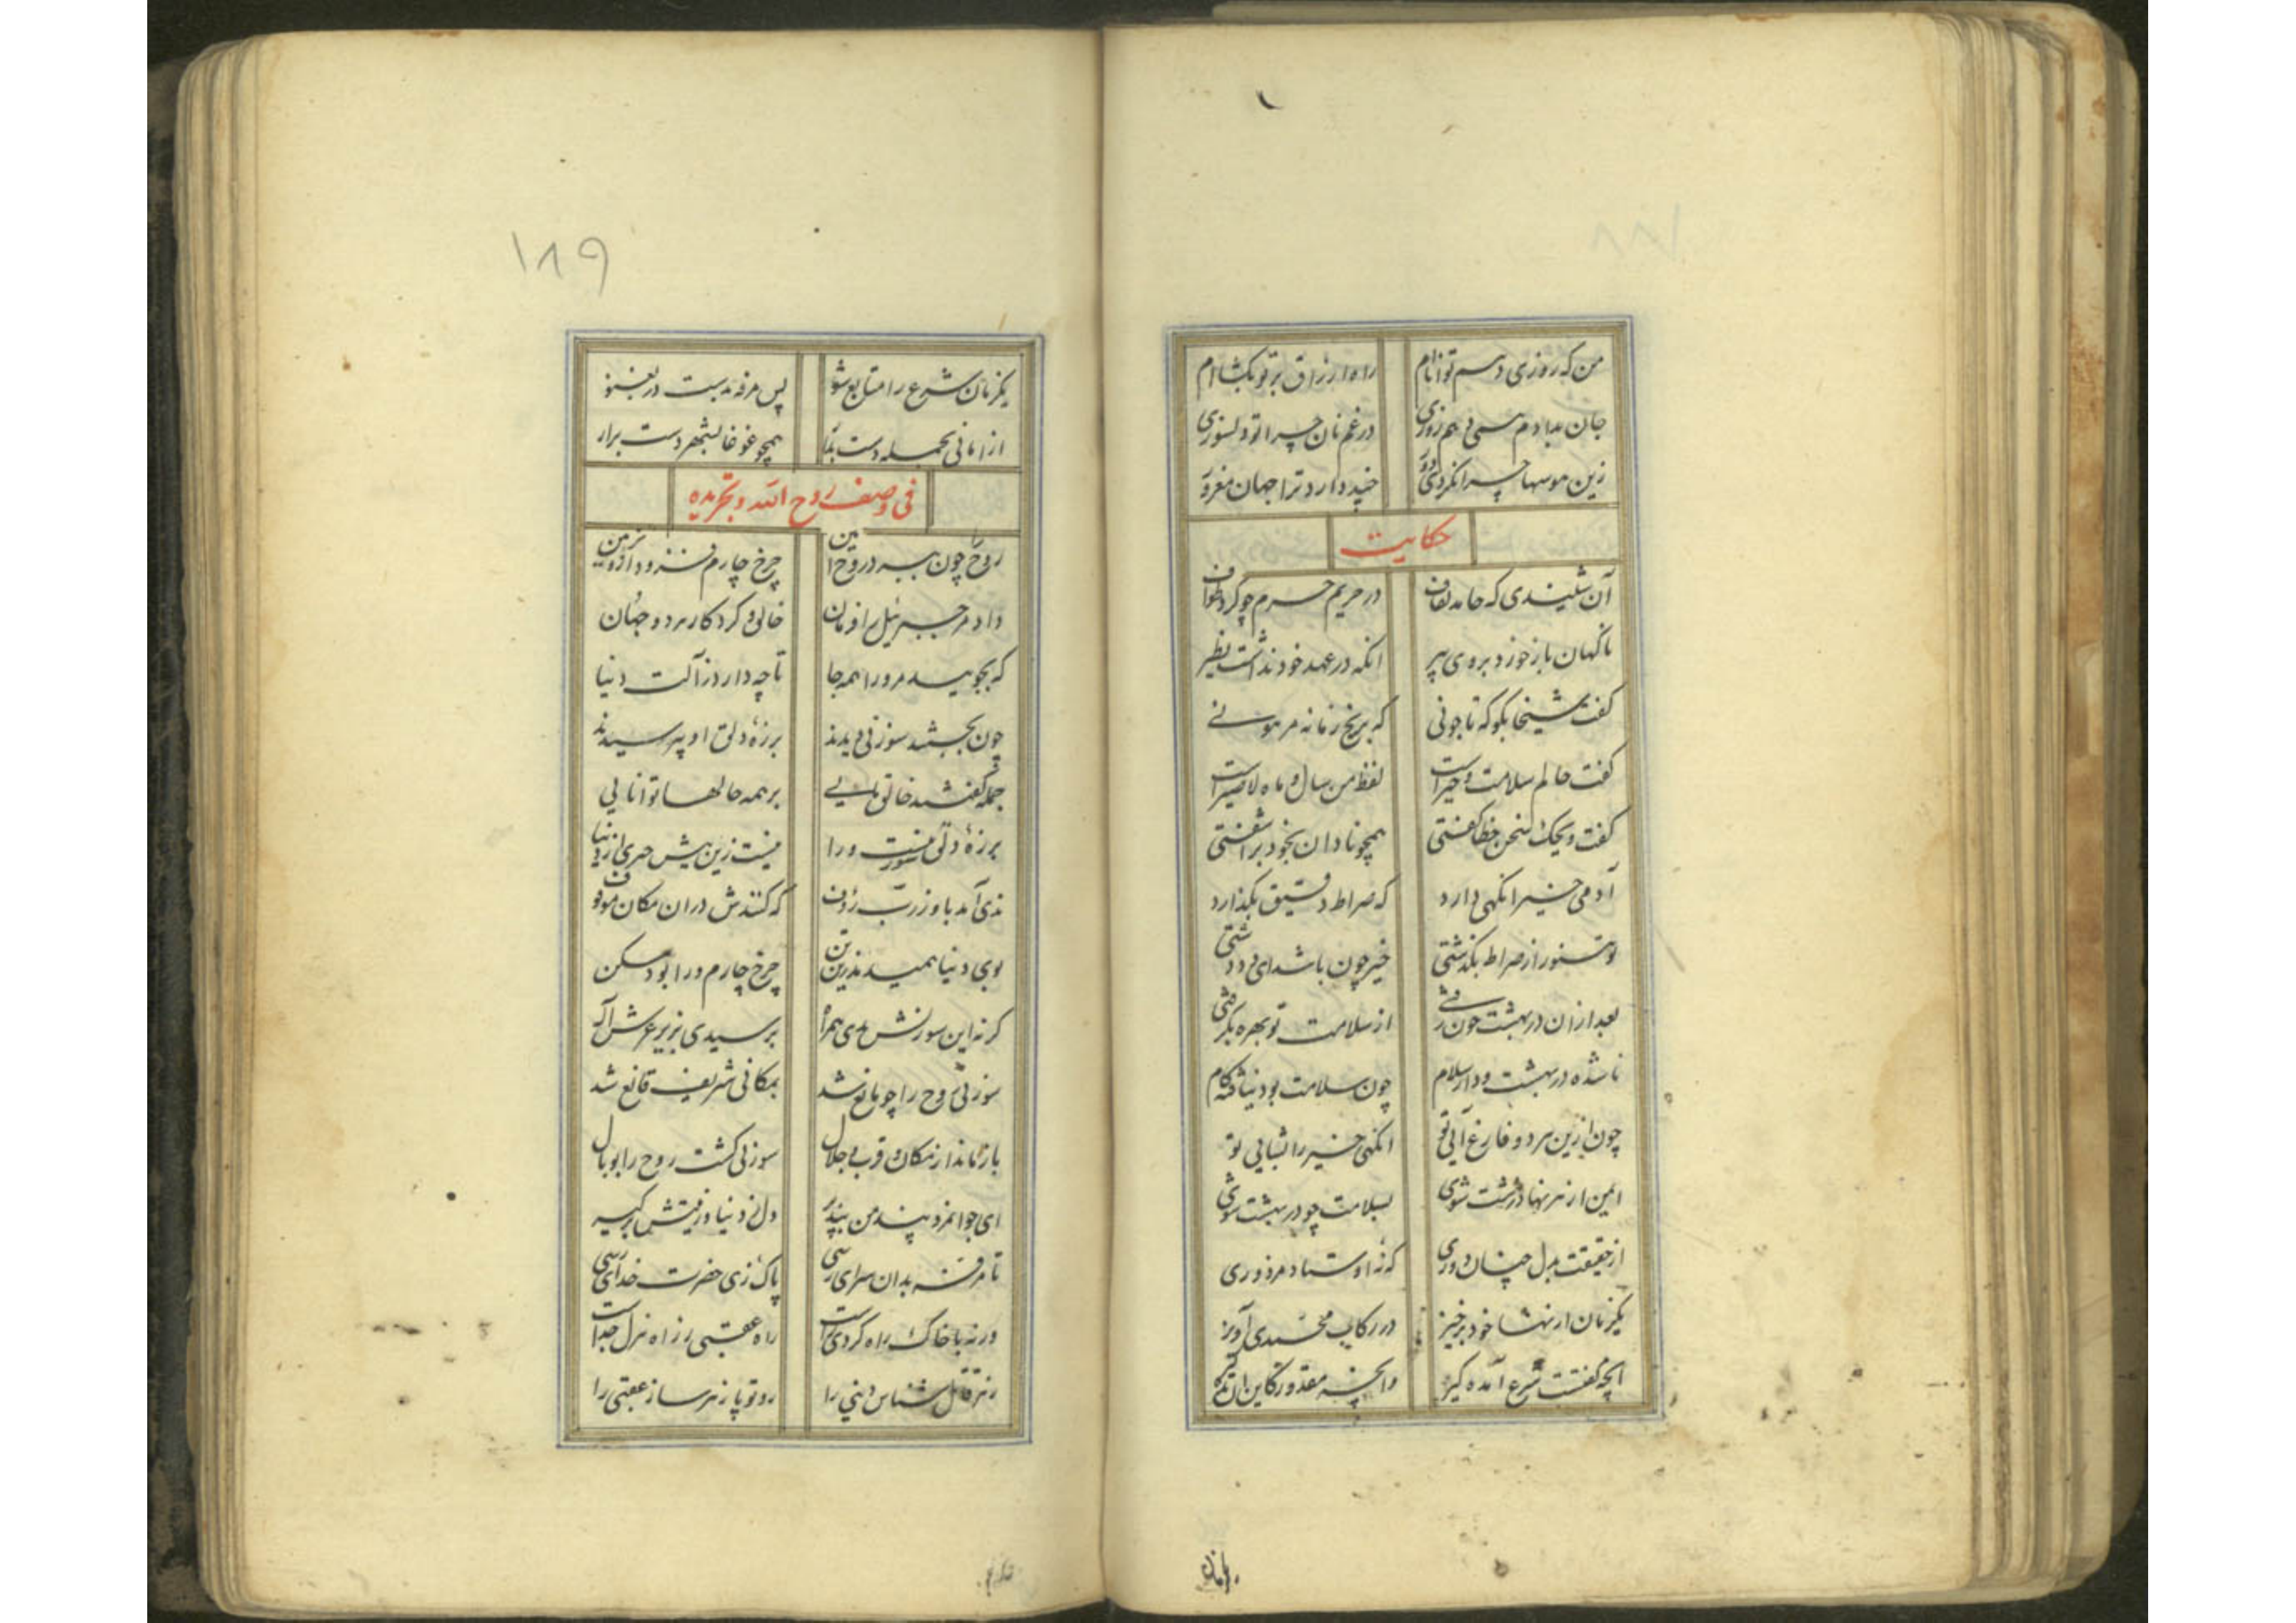 من که روزی دهم توانام    راه ارزاق بر تو بکشاام
جان بدادم همی دهم روزی    در غم نان چرا تو دلسوزی
زین هوسها چرا نکردی    چند دارد ترا جهان مغرور
حکایت
آن شنیدی که حامد لفاف    در حریم حرم چو کرد طواف
ناگهان باز خورد بروی پیر    انکه در عهد خود نداشت نظیر
گفت شیخا بگو که تا چونی    که برنج زمانه مرهونی
گفت حالم سلامت و خیراست    لفظ من سال و ماه لاضیراست
گفت ویحک سخن خطا گفتی    همچو نادان بخود برآشفتی
آدمی خیر انگهی دارد    که صراط دقیق بگذارد
تو هنوز از صراط بگذشتی    خیر چون باشد ای
بعد ازان در بهشت چون رفتی    از سلامت تو بهره بگرفتی
ناشده در بهشت و دار سلام    چون سلامت بود نیافته کام
چون ازین هر دو فارغ آئی تو    انگهی خیر را بشایی تو
ایمن از هر نهاد زشت شوی    بسلامت چو در بهشت شوی
از حقیقت بدل چنان دوری    که نه اوستاد مزدوری
یکزمان از نهاد خود برخیز    در رکاب محمدی آویز
انچه گفتست شرع آمده گیر    وانچه مقدور
یکزمان
۱۸۹
یکزمان شرع را متابع شو    پس مرفه بدست در بغنو
از امانی بجمله دست بدار    همچو غوغا بشهر دست برار
فی وصف روح الله و تجریده
روح چون برد روح امین    چرخ چارم فزود ازو تزیین
داد مر جبرئیل را فرمان    خالق و کردکار هر دو جهان
که بجویید مر ورا همه جا    تا چه دارد ز آلت دنیا
چون بجستند سوزنی دیدند    بر زه دلق او بپرسیدند
جمله گفتند خالق مایی    بر همه حالها توانایی
بر زه دلق سوزنیست ورا    نیست زین بیش چیزی از دنیا
ندی آمد باو ز رب رؤف    که کنندش دران مکان موقوف
بوی دنیا همی دمد زین تن    چرخ چارم ورا بود مسکن
گر نه این سوزنش بدی همراه    برسیدی بزیر عرش آله
سوزنی روح را چو مانع شد    بمکانی شریف قانع شد
باز ماند از مکان قرب و جلال    سوزنی گشت روح را بوبال
ای جوانمرد پند من بپذیر    دل ز دنیا و زینتش برگیر
تا مرفه بدان سرای رسی    پاک زی حضرت خدای رسی
ور نه با خاک راه گردی راست    راه عقبی ز راه منزل جداست
زهر قاتل شناس دنیی را    رو تو پازهر ساز عقبی را